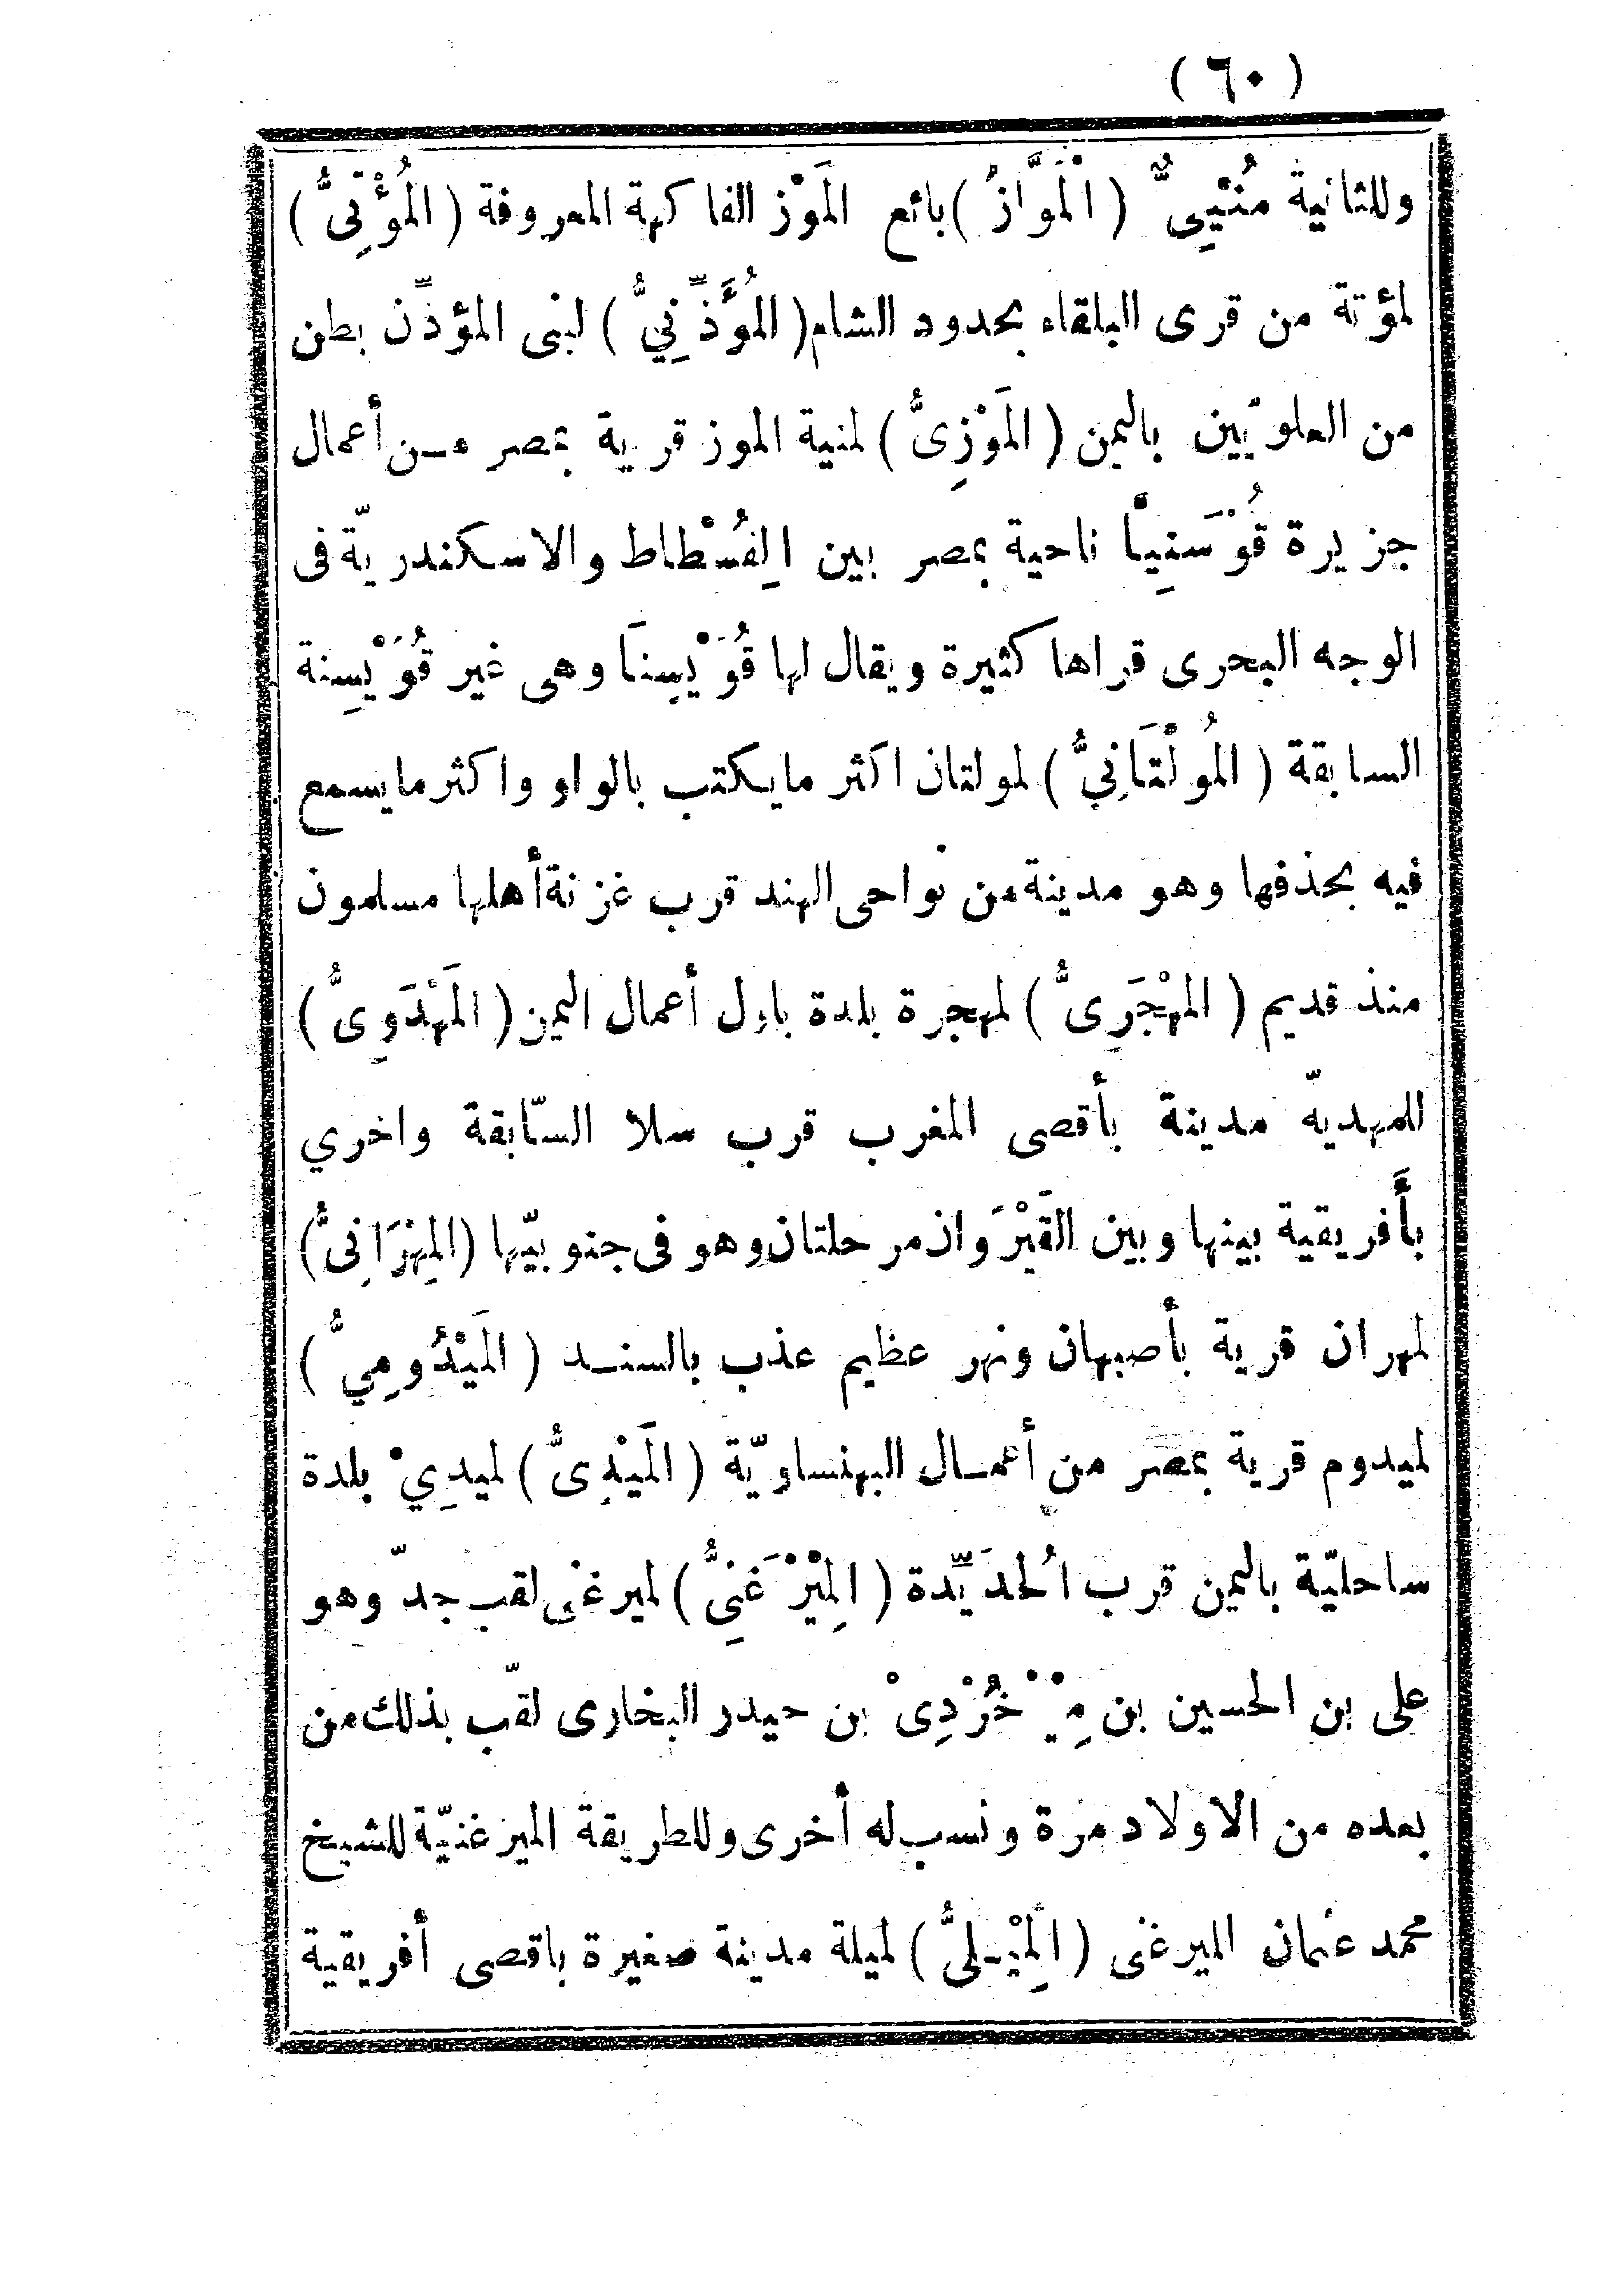 (٦٠)
وللثانية مُنْيِىٌّ (الْمَوَّازُ) بائع المَوْز الفاكهة المعروفة (المُؤْتِىُّ)
لمؤتة من قرى البلقاء بحدود الشام (المُؤَذِّنِيُّ) لبنى المؤذّن بطن
من العلويّين باليمن (المَوْزِىُّ) لمنية الموز قرية بمصر من أعمال
جزيرة قُوْسَنِيَّا ناحية بمصر بين الِفُسْطاط والاسكندريّة فى
الوجه البحرى قراها كثيرة ويقال لها قُوَيْسِنَا وهى غير قُوَيْسِنة
السابقة (المُولْتَانِيُّ) لمولتان اكثر مايكتب بالواو واكثر مايسمع
فيه بحذفها وهو مدينة من نواحى الهند قرب غزنة أهلها مسلمون
منذ قديم (المهْجَرِىُّ) لمهجرة بلدة باول أعمال اليمن (المَهْدَوِىُّ)
للمهديّه مدينة بأقصى المغرب قرب سلا السّابقة واخري
بأَفريقية بينها وبين القَيْرَوان مرحلتان وهو فى جنوبيّها (المِهْرَانِىُّ)
لمهران قرية بأصبهان ونهر عظيم عذب بالسنـد (المَيْدُومِيُّ)
لميدوم قرية بمصر من أعمـال البهنساويّة (المَيْدِىُّ) لميدِيْ بلدة
ساحليّة باليمن قرب الُحدَيِّدة (المِيْرْغَنِىُّ) لميرغنى لقب جدّ وهو
على بن الحسين بن مِيْرْ خُرْدِىْ بن حيدر البخارى لقّب بذلك من
بعده من الاولاد مرة ونسب له أخرى وللطريقة الميرغنيّة للشيخ
محمد عثمان الميرغنى (المِيْـلىُّ) لميلة مدينة صغيرة باقصى أفريقية